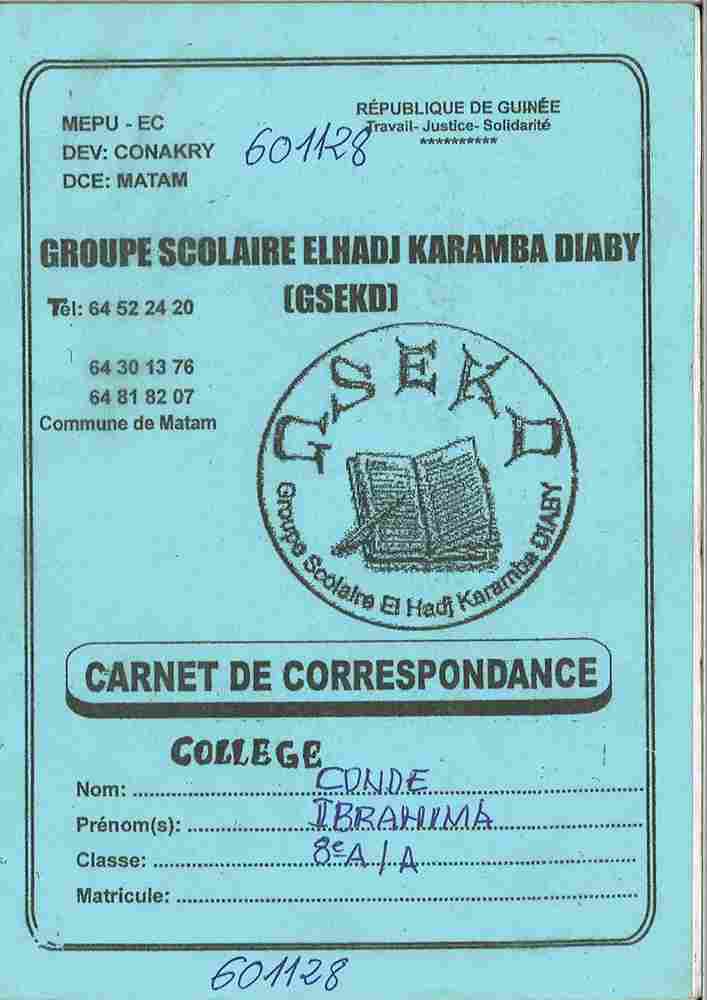 MEPU - EC
DEV: CONAKRY
DCE: MATAM
601128
RÉPUBLIQUE DE GUINÉE
Travail- Justice- Solidarité
**********
GROUPE SCOLAIRE ELHADJ KARAMBA DIABY
(GSEKD)
Tél: 64 52 24 20
64 30 13 76
64 81 82 07
Commune de Matam
GSEKD
Groupe Scolaire El Hadj Karamba DIABY
CARNET DE CORRESPONDANCE
COLLEGE
Nom: CONDE
Prénom(s): IBRAHIMA
Classe: 8eA/A
Matricule:
601128